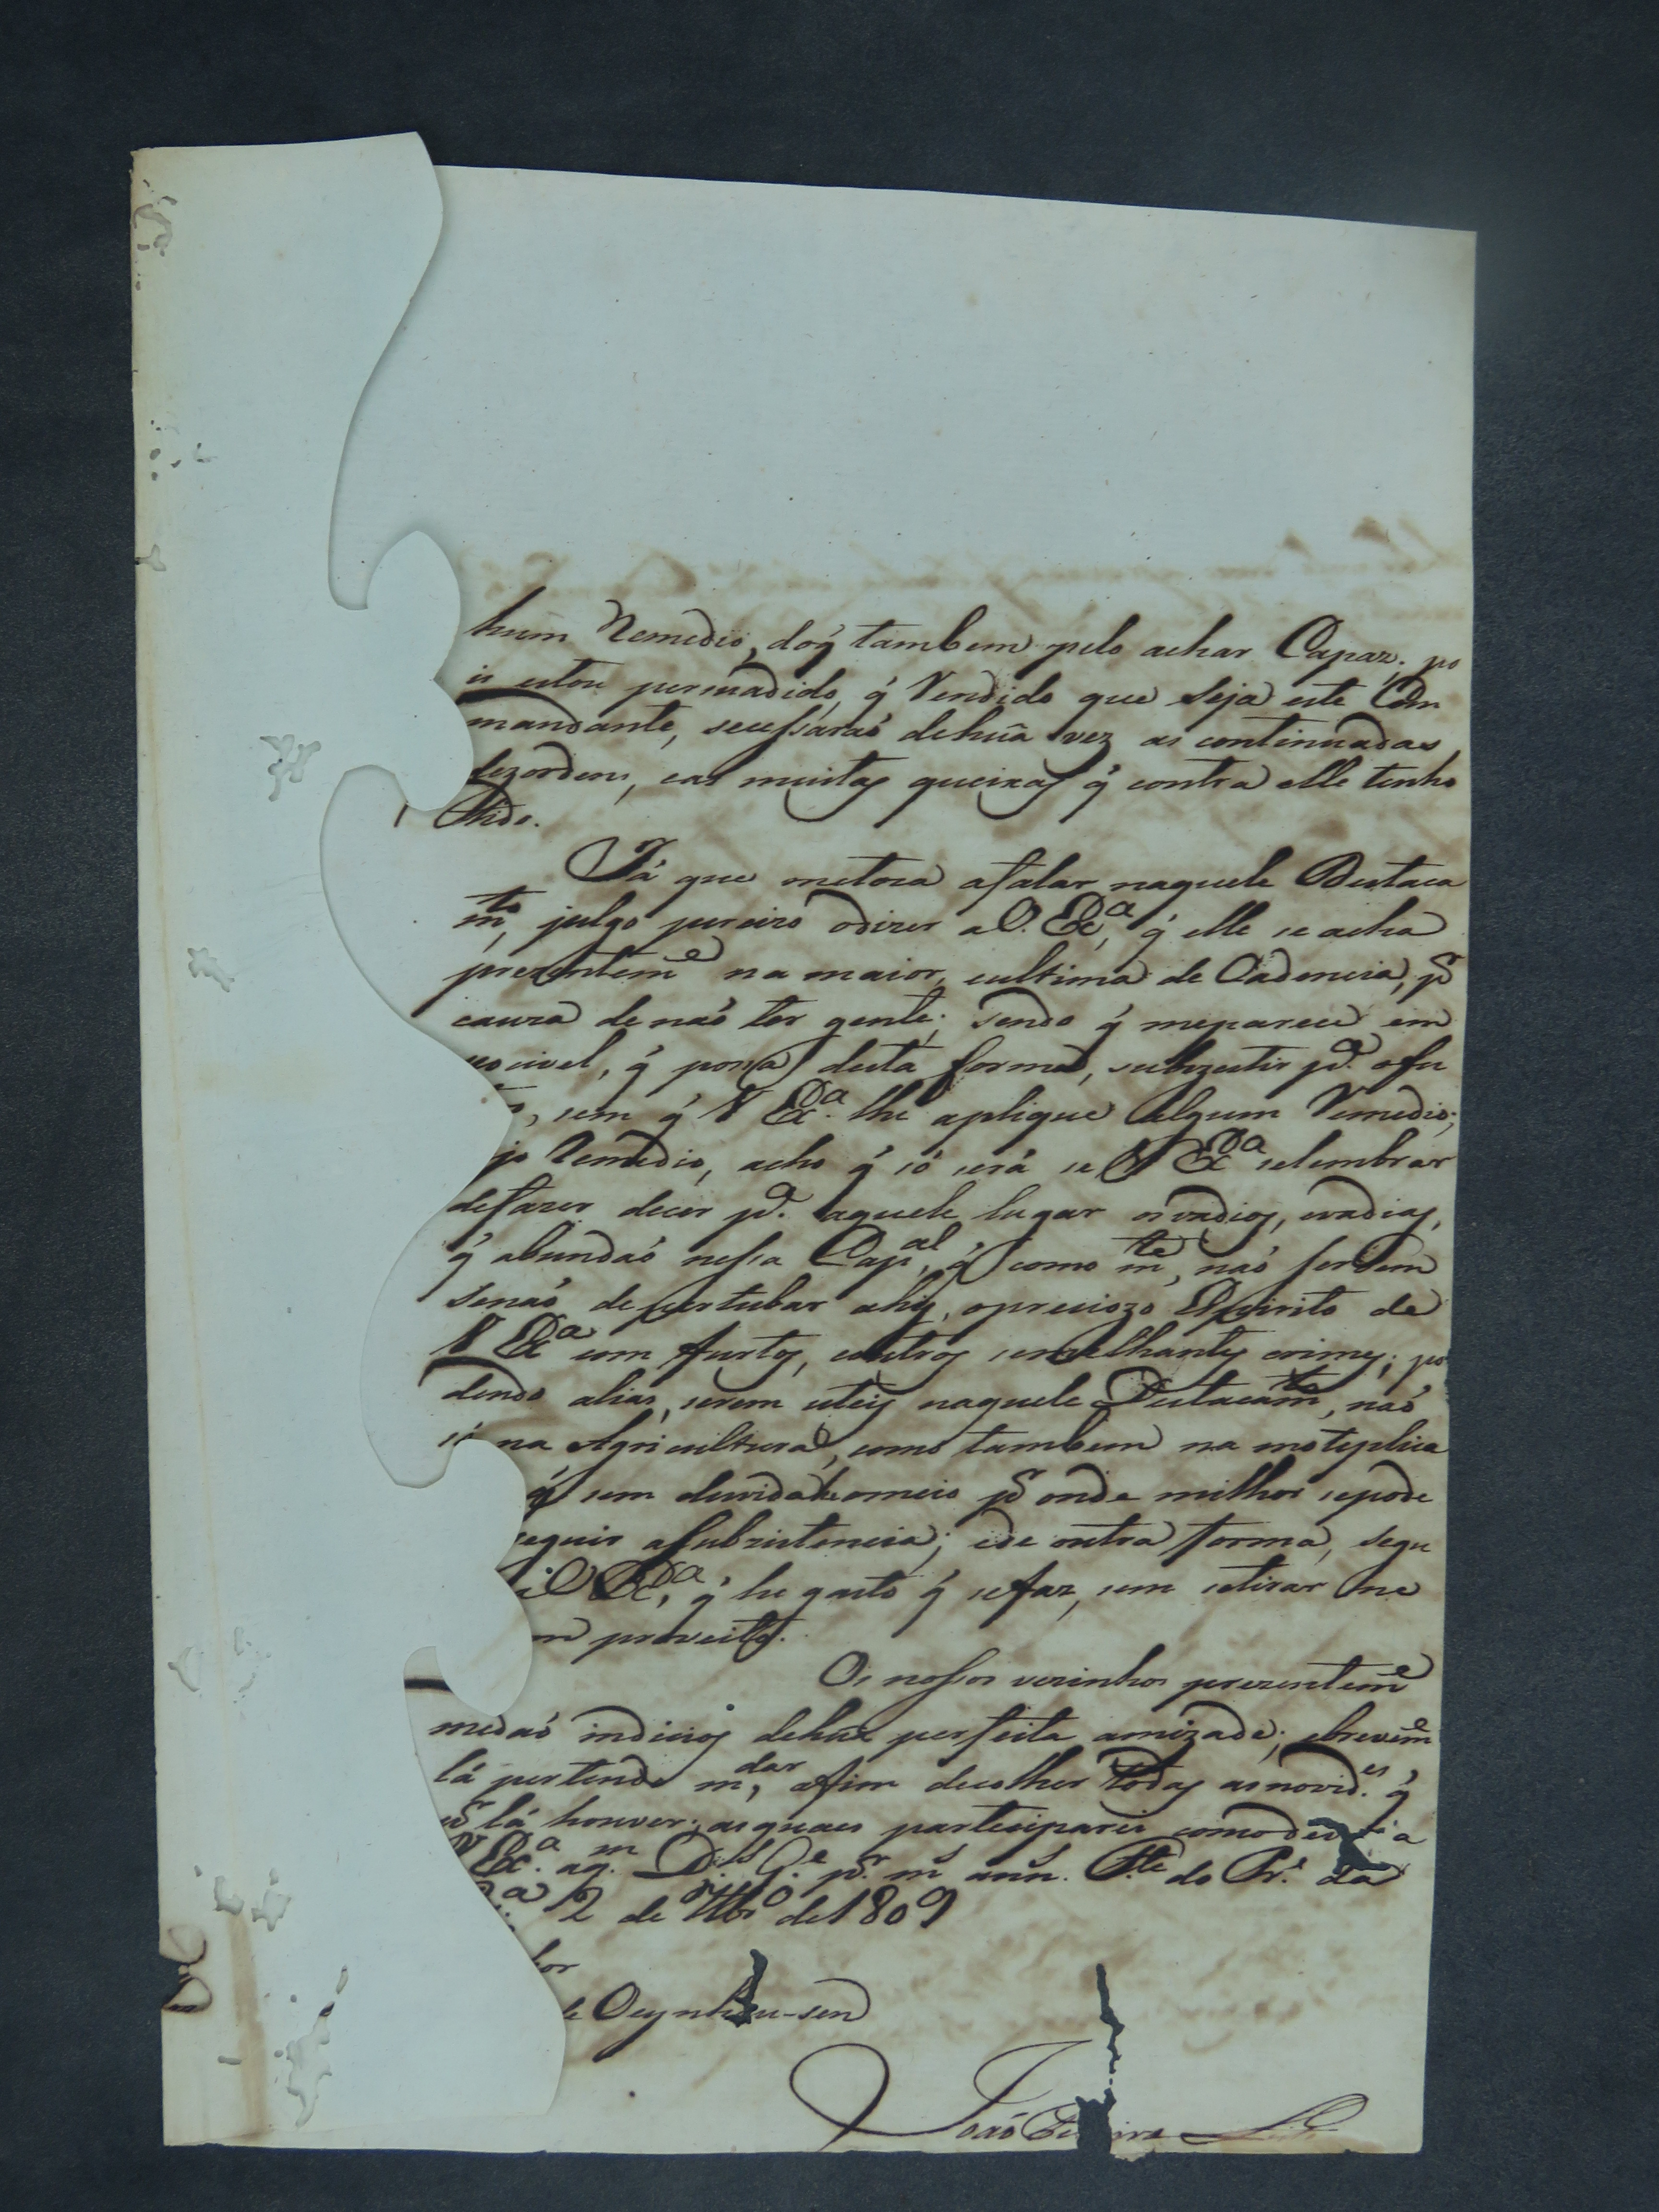 hum Remedio, doq̃ tambem pelo achar Capaz; po
is estou persuadido, q̃ Rendido que seja este Com
mandante, secessáraó dehũa vez as continuadas
sezordens, eas muitas queixas q̃ contra elle tenho
tido.
Já que metoca afalar naquele Destaca
m.to, julgo percizo odizer a V. Ex.a, q̃ elle se acha
prezentem.e na maior, eultima de Cadencia, p.r
cauza denaó ter gente; sendo q̃ meparece em
posivel, q̃ possa desta forma, subzestir p.a ofu
, sem q̃ V Ex.a lhe aplique algum Remedio;
jo Remedio, acho q̃ só será se V Ex.a selembrar
defazer decer p.a aquele lugar osvadios, evadias,
q̃ abundaó nessa Cap.al, q̃ como tẽm, naó servem
senaó de pertubar ahy, opreciozo Espirito de
V Ex.a com furtos, eoutros semelhantes crimes; po
dendo alias, serem uteis naquele Destacam.to, naó
só na Agricultura, como tambem na moteplica
q̃ sem duvida he omeio p.r onde milhor sepode
seguir asubzistencia; ede outra forma, segu
a V Ex.a, q̃ he gasto q̃ sefaz, sem setirar ne
m proveito.
Os nossos vezinhos prezentem.e
medaó indicios dehũa perfeita amizade; ebrevem.e
lá pertendo m.dar, afim decolher todas asnovid.es q̃
p.r lá houver; asquaes partesiparei comodevo a
V Ex.a aq.m D.s G.e p.r m.s ann.s F.te do Pr.e da
2 de 7br.o de1809
hor
de Oeynhau-sen
Joaó Fe ira